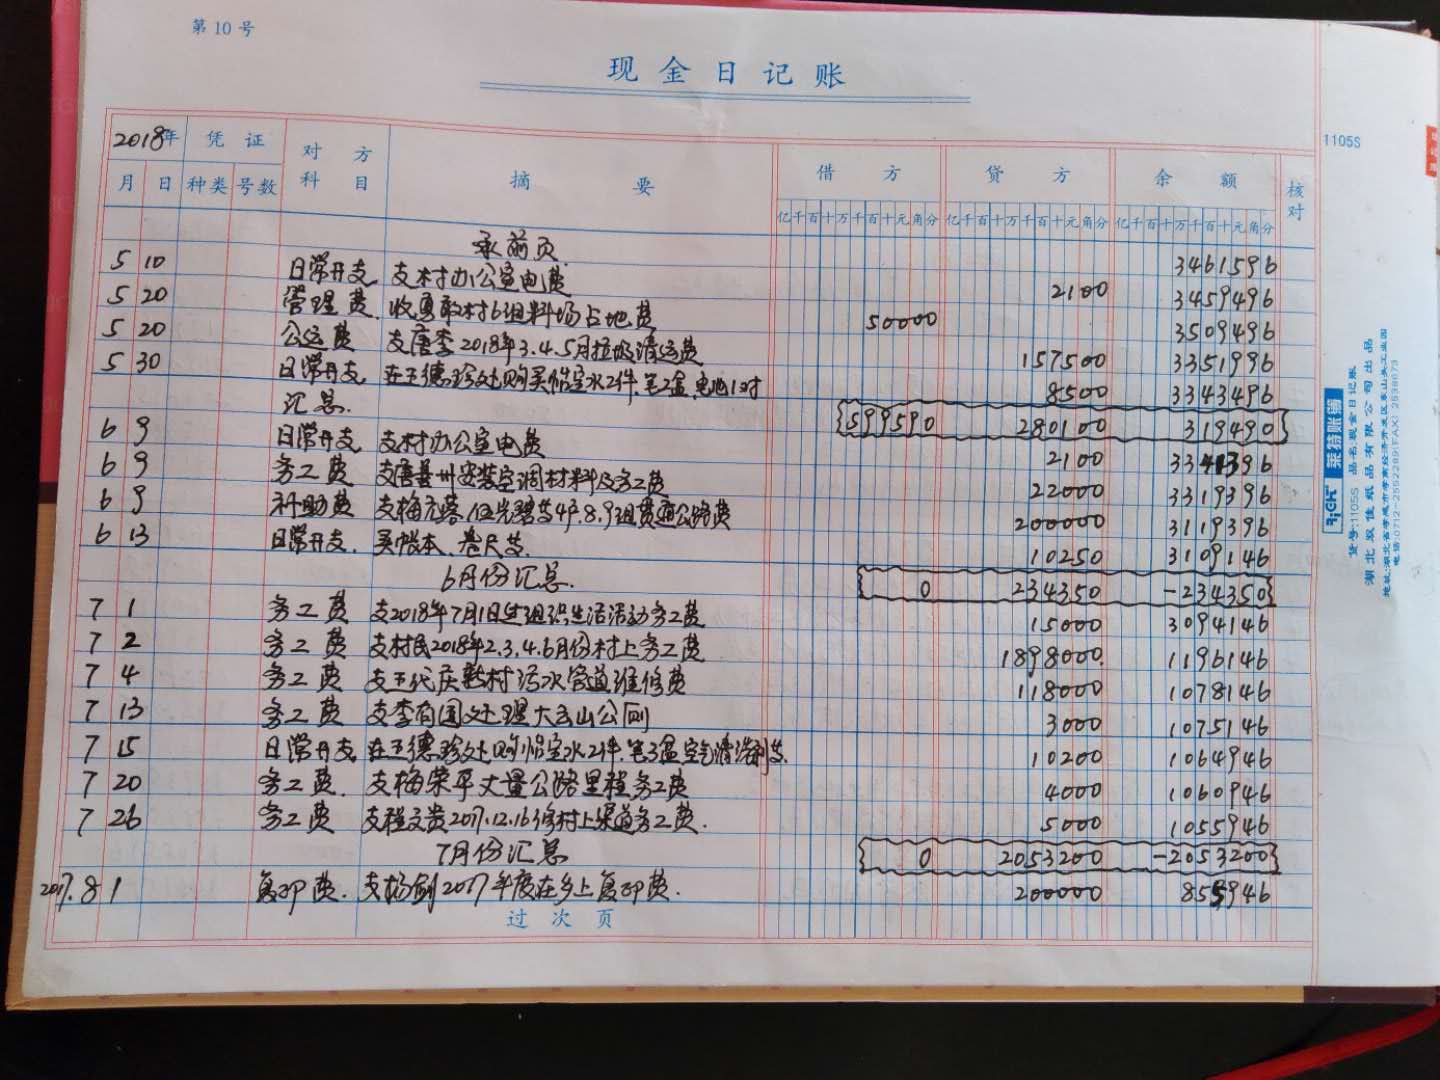 第 10 号
现金日记账
2018年 凭证 对方科目 摘要 借方 贷方 余额 核对
月 日 种类 号数 亿千百十万千百十元角分 亿千百十万千百十元角分 亿千百十万千百十元角分
承前页 3461596
5 10 日常开支 支村办公室电费 2100 3459496
5 20 管理费 收勇敢村6组料场占地费 50000 3509496
5 20 公运费 支唐李2018年3.4.5月垃圾清运费 157500 3351996
5 30 日常开支 在王德珍处购买怡宝水2件.笔2盒.电池1对 8500 3343496
汇总. 599590 280100 319490
6 9 日常开支 支村办公室电费 2100 3341396
6 9 务工费 支唐善州安装空调材料及务工费 22000 3319396
6 9 补助费 支梅 4户.8.9组贯通公路费 200000 3119396
6 13 日常开支. 买帐本.卷尺等. 10250 3109146
6月份汇总. 0 234350 -234350
7 1 务工费 支2018年7月1日党组织生活活动务工费 15000 3094146
7 2 务工费 支村民2018年2.3.4.6月份村上务工费 1898000 1196146
7 4 务工费 支王代庆 村污水管道维修费 118000 1078146
7 13 务工费 支李有国处理大 山公厕 3000 1075146
7 15 日常开支 在王德珍处购怡宝水2件.笔3盒.空气清洗剂等. 10200 1064946
7 20 务工费. 支梅荣平丈量公路里程务工费 4000 1060946
7 26 务工费 支程文贵2017.12.16修村上渠道务工费. 5000 1055946
7月份汇总 0 2053200 -2053200
2017.8 1 复印费. 支杨剑2017年度在乡上复印费. 200000 855946
过次页
1105S
莱特账簿
货号:1105S 品名:现金日记账
湖北双佳纸品有限公司出品
地址:湖北省孝感市孝南经济开发区孝山头工业园